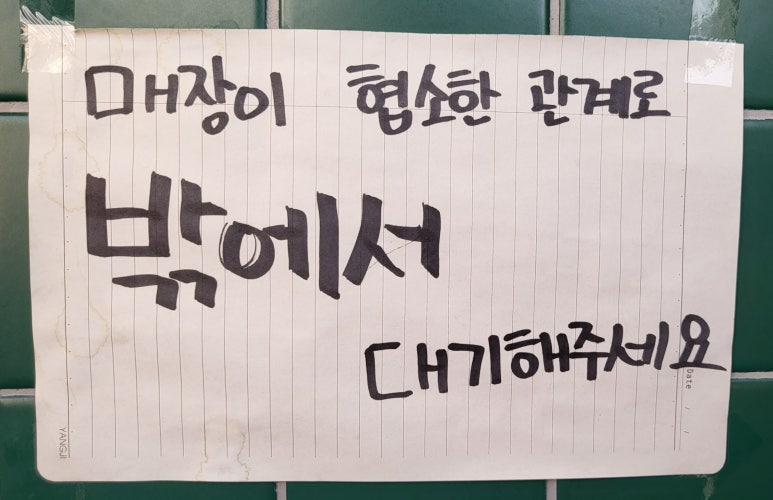 매장이 협소한 관계로
밖에서
대기해주세요
Date / /
YANGJI